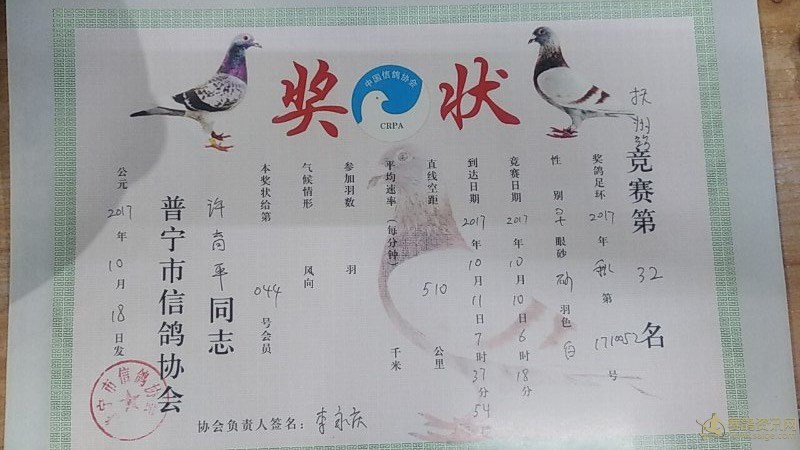 奖状
中国信鸽协会
CRPA
抚州
竞赛第 32 名
奖鸽足环 2017 年 秋 第 171052 号
性别 早 眼砂 砂 羽色 白
竞赛日期 2017 年 10 月 10 日 6 时 18 分
到达日期 2017 年 10 月 11 日 7 时 37 分 54
直线空距 510 公里
平均速率(每分钟) 千米
参加羽数 羽
气候情形 风向
本奖状给第 044 号会员
许尚平同志
普宁市信鸽协会
公元 2017 年 10 月 18 日发
宁市信鸽协
协会负责人签名:李永庆